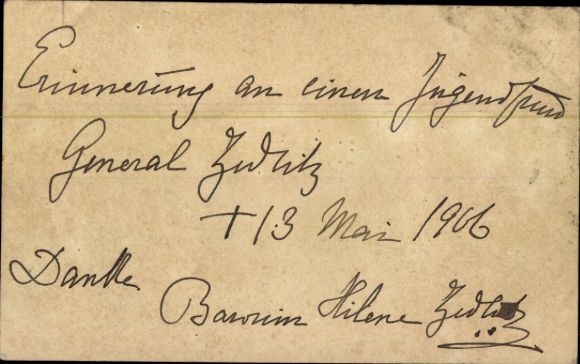 Erinnerung an einen Jugendfreund
General Zedlitz
† 13 Mai 1906
Danke
Baronin Hilene Zedlitz